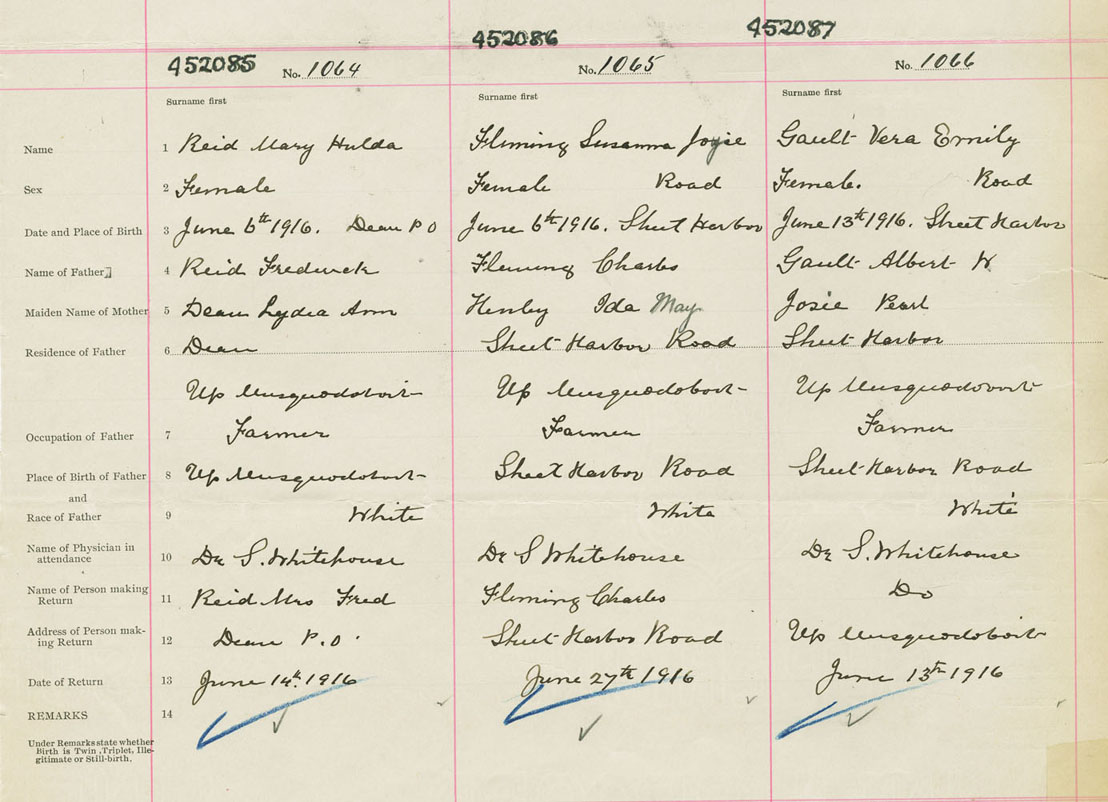 452085 452086 452087
No. 1064 No. 1065 No. 1066
Surname first Surname first Surname first
Name 1 Reid Mary Hulda Fleming Susanna Joyce Gault Vera Emily
Sex 2 Female Female Road Female. Road
Date and Place of Birth 3 June 6th 1916. Dean P O June 6th 1916. Sheet Harbor June 13th 1916. Sheet Harbor
Name of Father 4 Reid Frederick Fleming Charles Gault Albert W.
Maiden Name of Mother 5 Dean Lydia Ann Henley Ida May Josie Pearl
Residence of Father 6 Dean Sheet Harbor Road Sheet Harbor
Up Musquodoboit Up Musquodoboit Up Musquodoboit
Occupation of Father 7 Farmer Farmer Farmer
Place of Birth of Father 8 Up Musquodoboit Sheet Harbor Road Sheet Harbor Road
and
Race of Father 9 White White White
Name of Physician in
attendance 10 Dr S. Whitehouse Dr S Whitehouse Dr S. Whitehouse
Name of Person making
Return 11 Reid Mrs Fred Fleming Charles Do
Address of Person mak-
ing Return 12 Dean P.O. Sheet Harbor Road Up Musquodoboit
Date of Return 13 June 14th. 1916 June 27th 1916 June 13th 1916
REMARKS 14
Under Remarks state whether
Birth is Twin, Triplet, Ille-
gitimate or Still-birth.